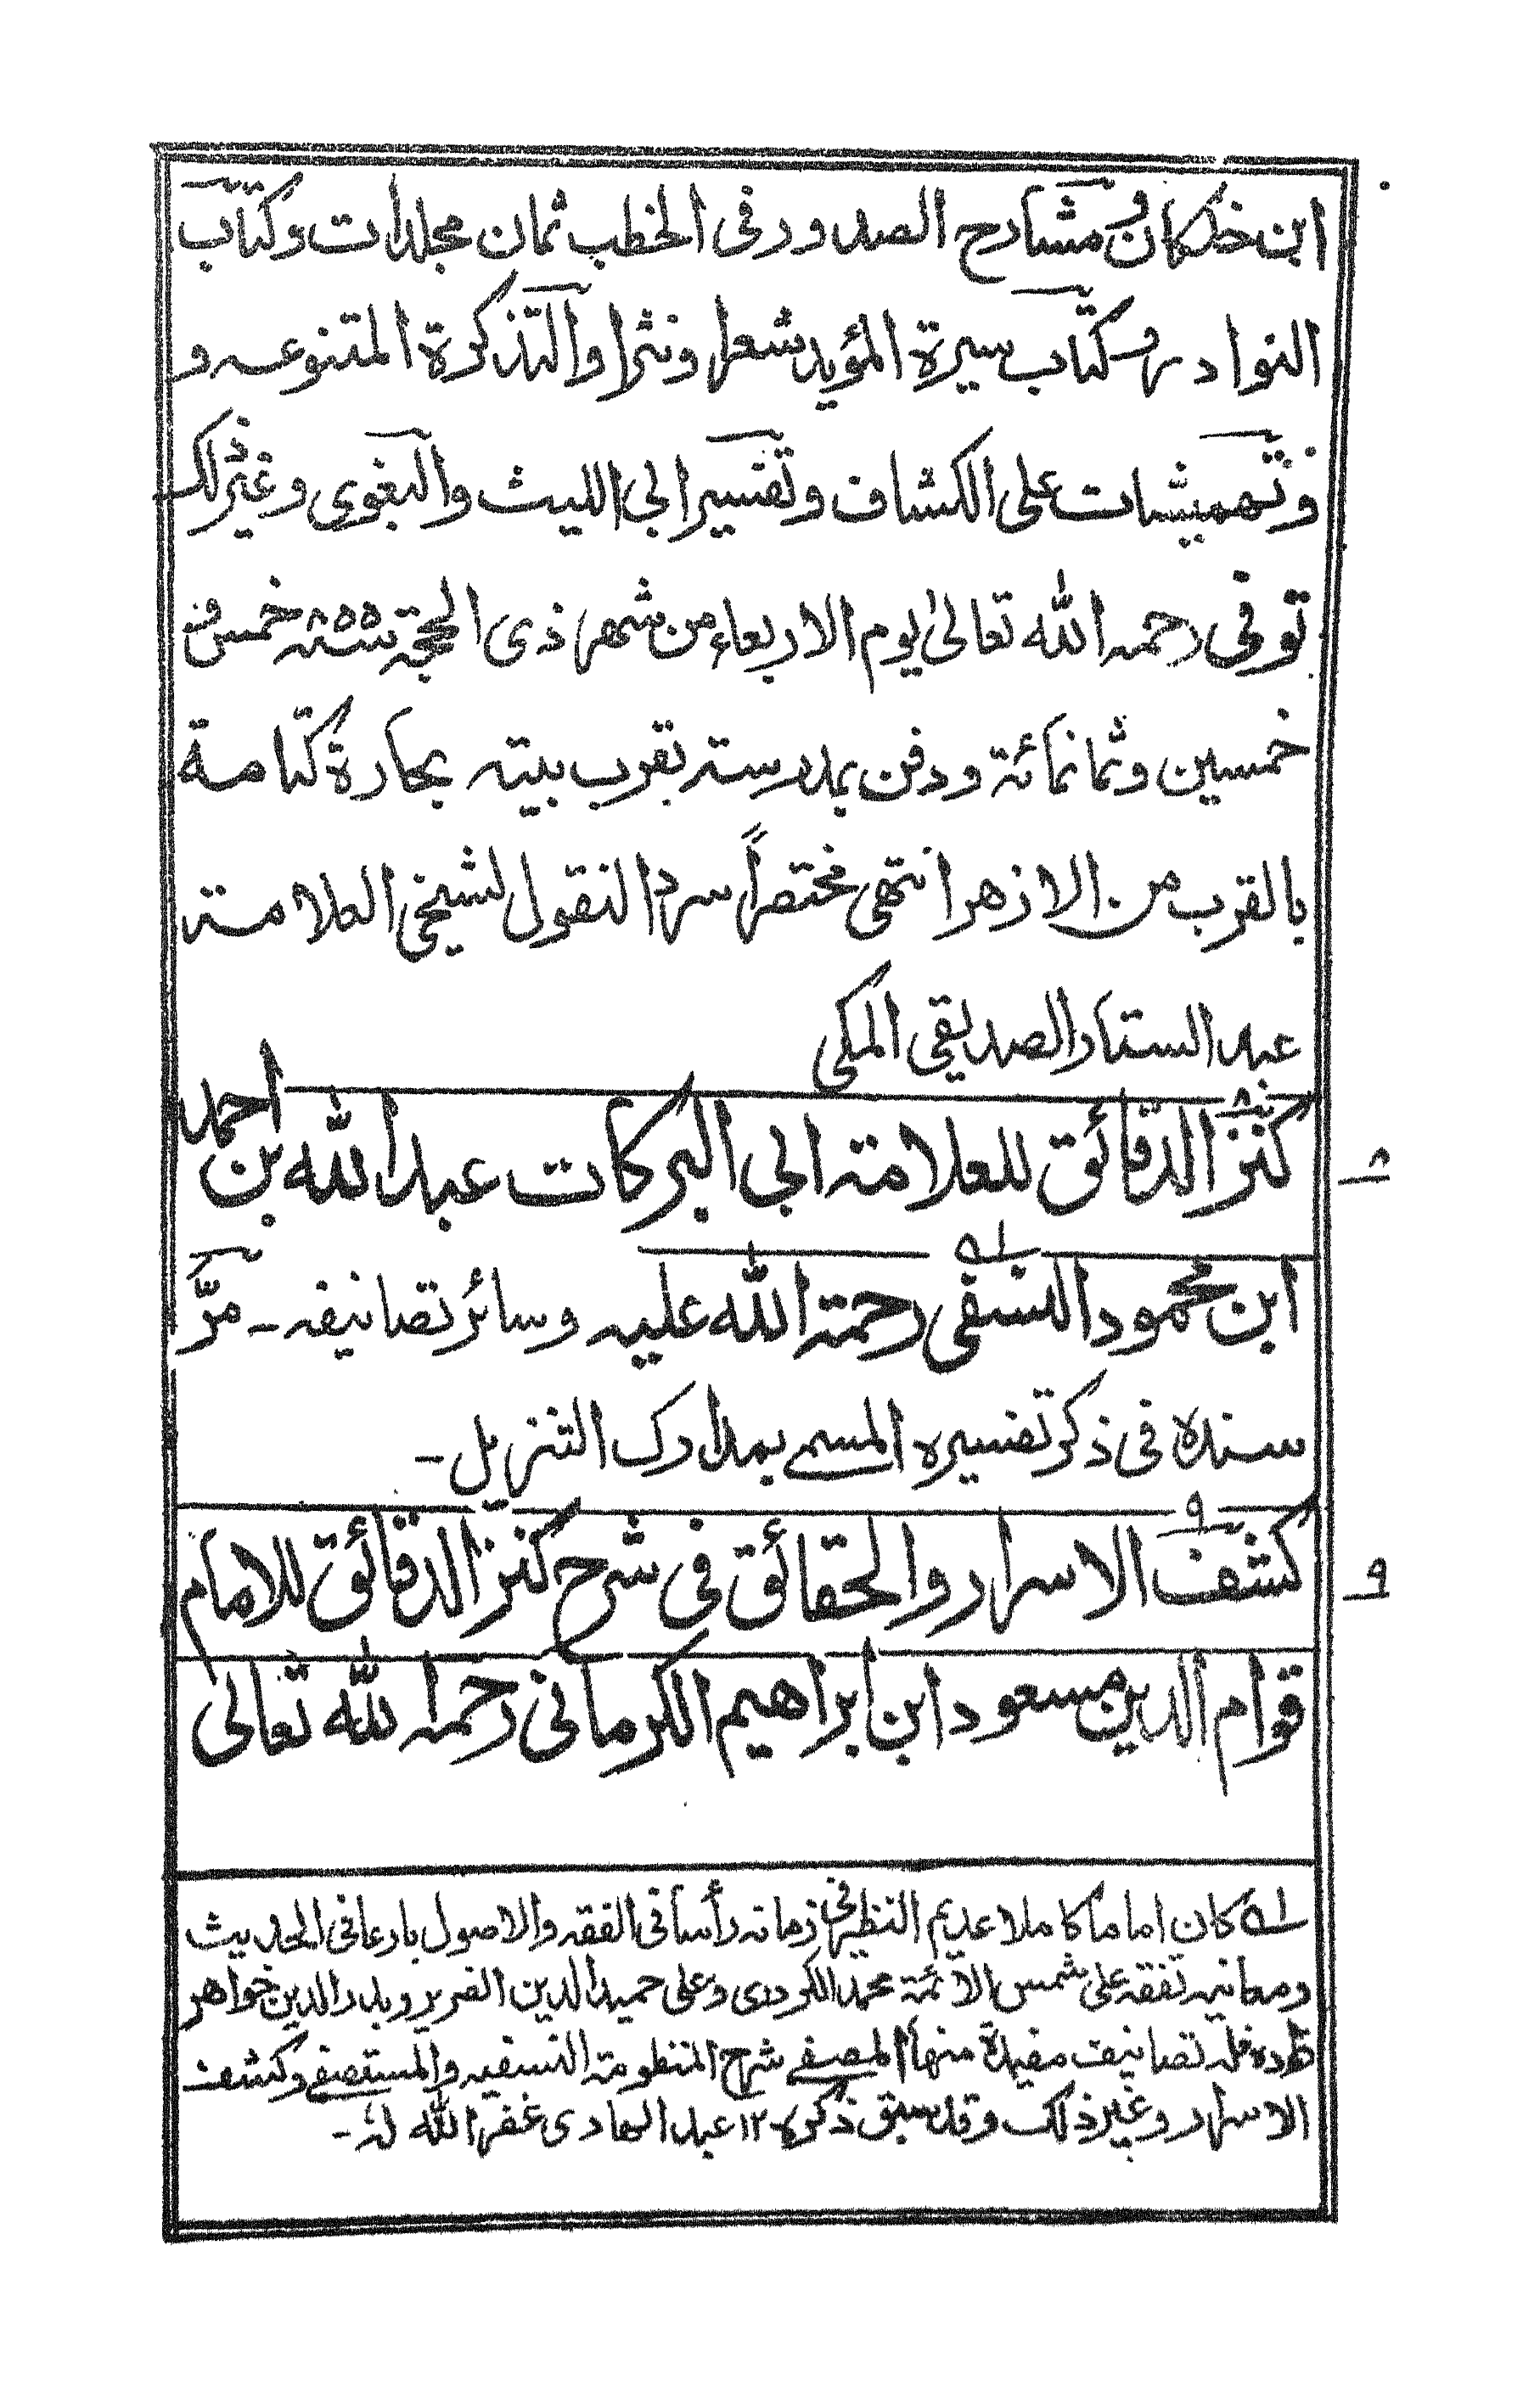 ابن خلكان ومشارح الصدور فى الخطب ثمان مجلدات وكتاب
النوادر وكتاب سيرة المؤيد شعرا ونثرا والتذكرة المتنوعه و
وتهميشات على الكشاف وتفسير ابى الليث والبغوى وغير ذلك
توفى رحمه الله تعالىٰ يوم الاربعاء من شهر ذى الحجة سنة ٨٥٥ خمس و
خمسين وثمانمائة ودفن بمدرسته بقرب بيته بحارة كتامة
بالقرب من الازهر انتهى مختصراً سرد النقول لشيخى العلامة
عبد الستار الصديقى المكى
٨ كنز الدقائق للعلامة ابى البركات عبد الله بن احمد
ابن محمود النسفى ١ه رحمة الله عليه وسائر تصانيفه ـ مرّ
سنده فى ذكر تفسيره المسمے بمدارك التنزيل ـ
٩ كشف الاسرار والحقائق فى شرح كنز الدقائق للامام
قوام الدين مسعود ابن ابراهيم الكرمانى رحمه الله تعالى
١ه كان اماما كاملا عديم النظير فى زمانه رأسا فى الفقه والاصول بارعا فى الحديث
ومعانيه تفقه على شمس الائمة محمد الكردرى وعلى حميد الدين الضرير وبدر الدين خواهر
زاده فله تصانيف مفيدة منها المصفے شرح المنظومة النسفيه والمستصفے وكشف
الاسرار وغير ذلك وقد سبق ذكره ١٢ عبد الهادى غفر الله له ـ